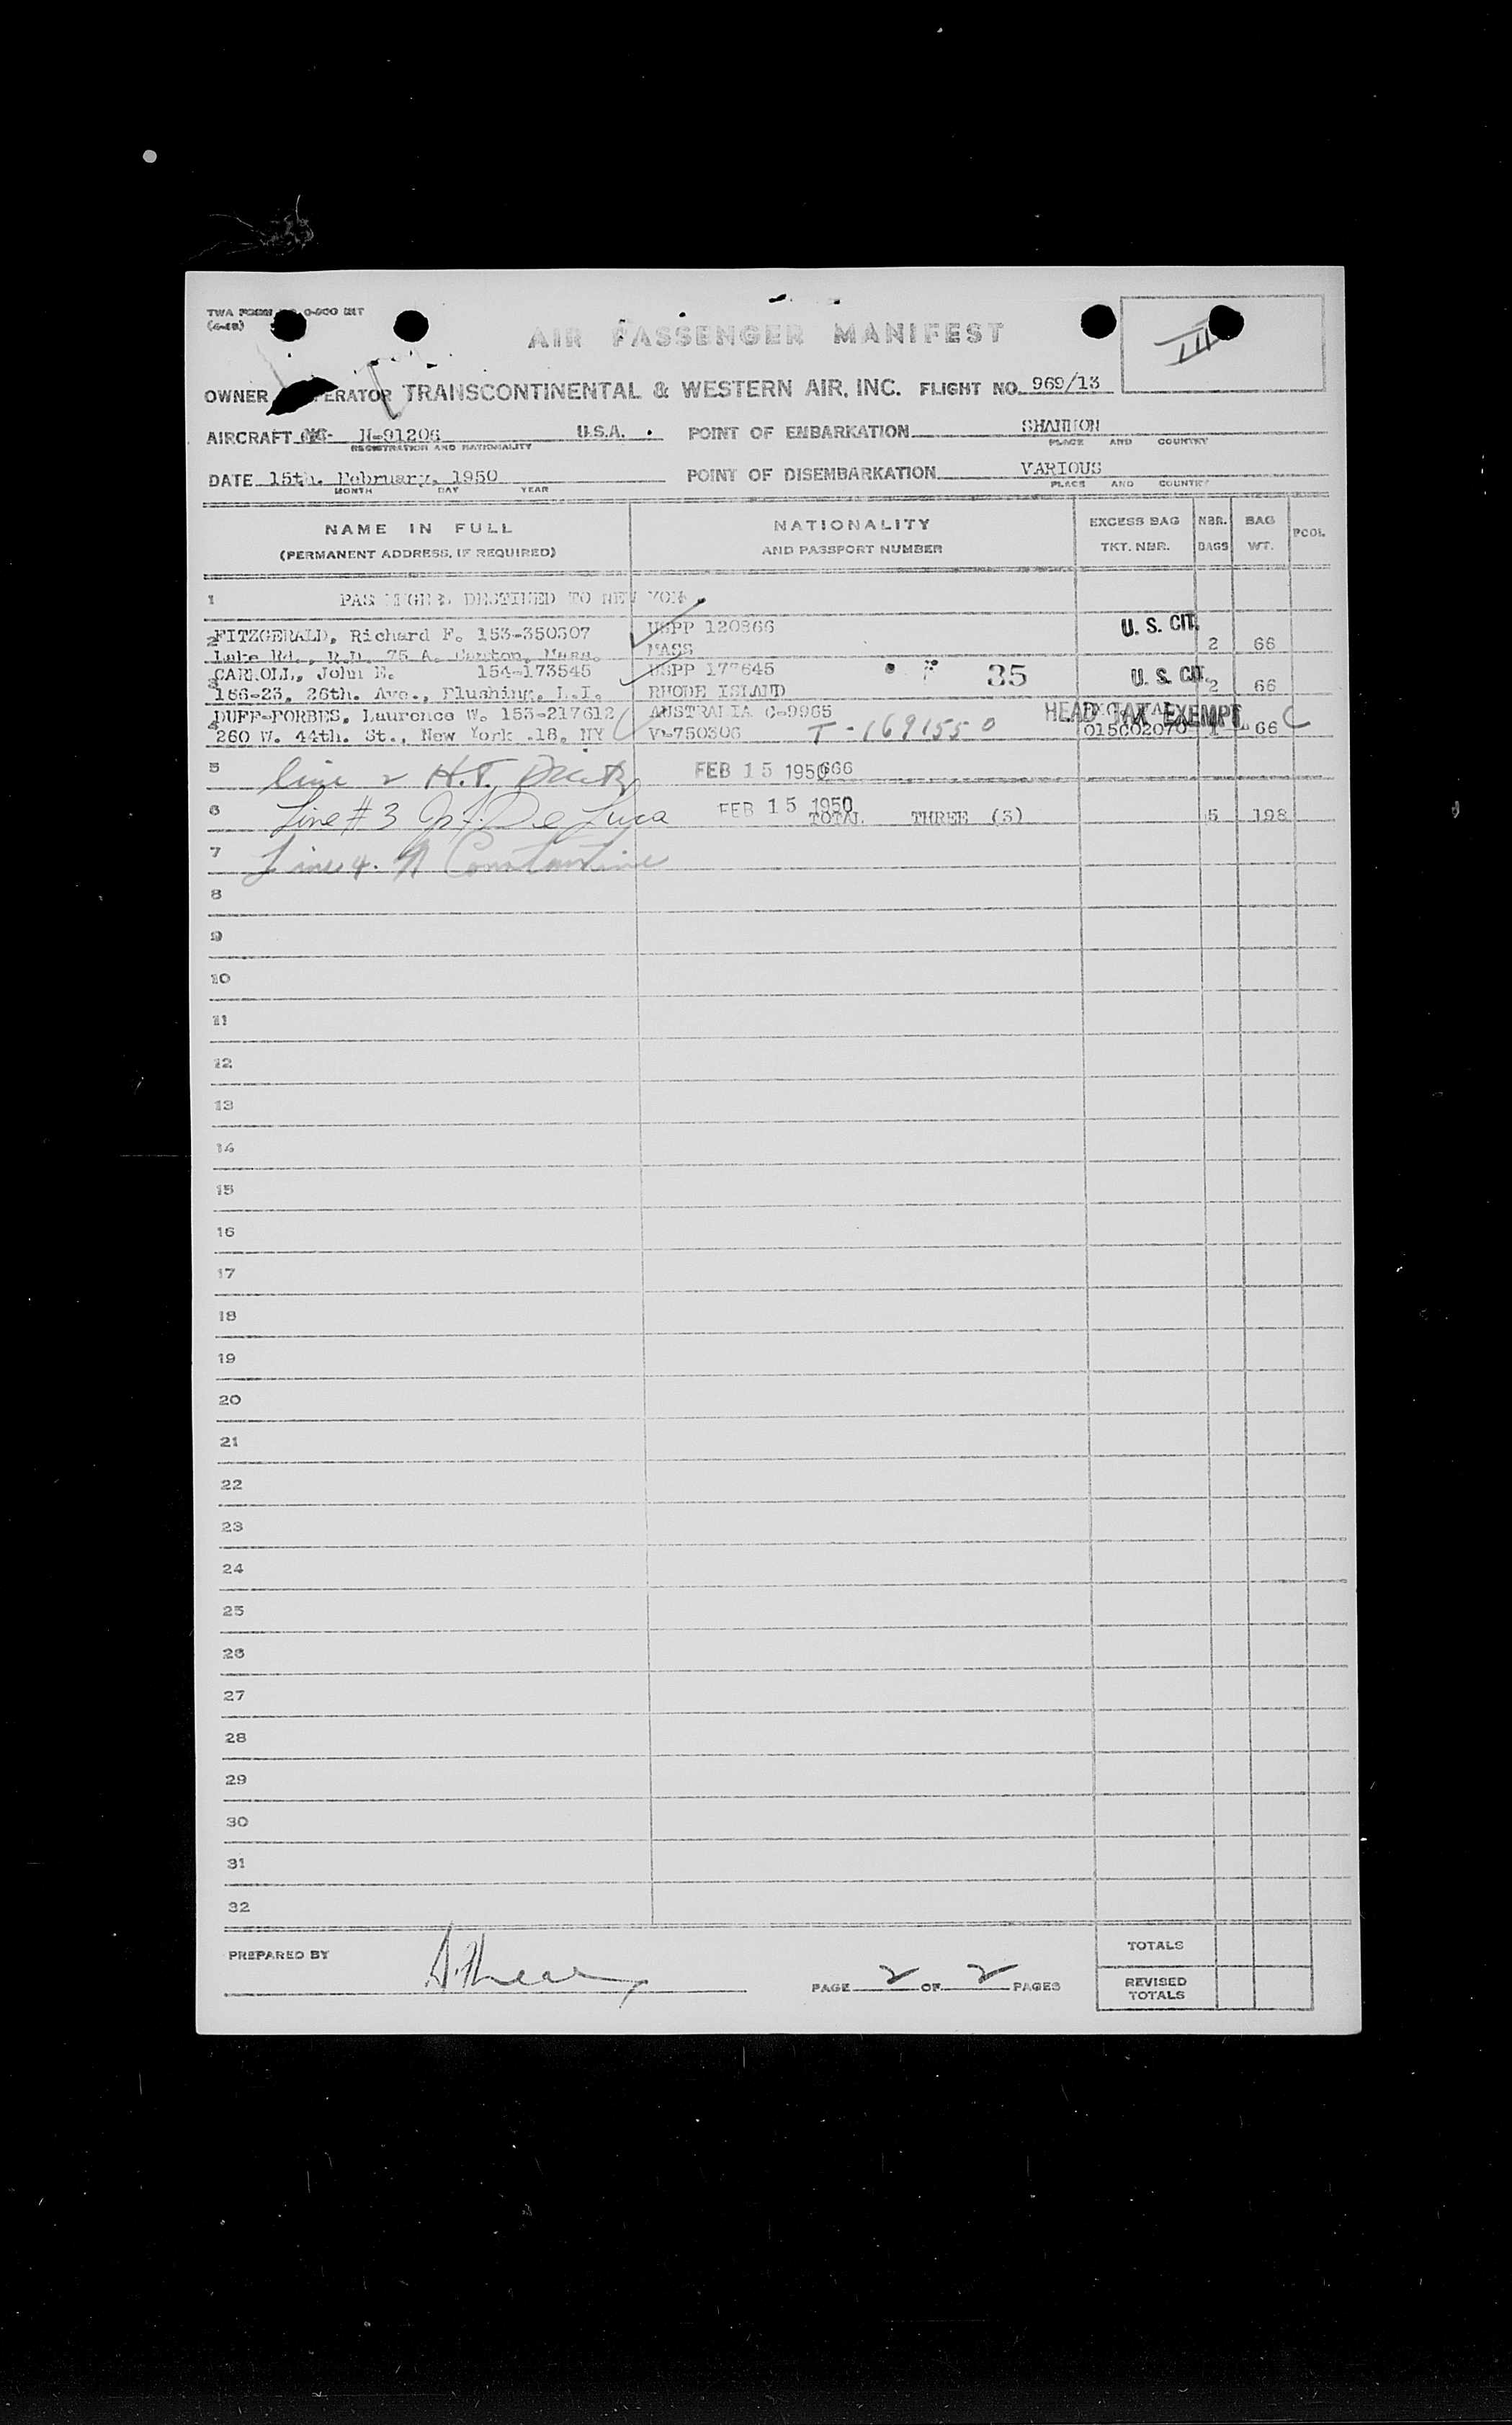 TWA FORM 0-900 INT
(4-48)
AIR PASSENGER MANIFEST
OWNER OPERATOR TRANSCONTINENTAL & WESTERN AIR, INC. FLIGHT NO. 969/13
AIRCRAFT N-91206 U.S.A. POINT OF EMBARKATION SHANNON
REGISTRATION AND NATIONALITY PLACE AND COUNTRY
DATE 15th. February, 1950 POINT OF DISEMBARKATION VARIOUS
MONTH DAY YEAR PLACE AND COUNTRY
NAME IN FULL NATIONALITY EXCESS BAG NBR. BAG POOL
(PERMANENT ADDRESS, IF REQUIRED) AND PASSPORT NUMBER TKT. NBR. BAGS WT.
1 PASSENGERS DESTINED TO NEW YORK.
2 FITZGERALD, Richard F. 153-350307 USPP 120866 U. S. CIT.
Lake Rd., R.D. 75 A. Canton, Mass. MASS 2 66
3 CARROLL, John E. 154-173545 USPP 177645 35 U. S. CIT.
166-23, 26th. Ave., Flushing, L.I. RHODE ISLAND 2 66
4 DUFF-FORBES, Laurence W. 153-217612 AUSTRALIA C-9965 HEAD TAX EXEMPT
260 W. 44th. St., New York .18, NY V-750306 T-1691550 015C02070 1 66 C
5 Line 2 H.T. FEB 15 1950 666
6 Line #3 De Luca FEB 15 1950 TOTAL THREE (3) 5 198
7 Line 4. N Constantine
8
9
10
11
12
13
14
15
16
17
18
19
20
21
22
23
24
25
26
27
28
29
30
31
32
PREPARED BY PAGE 2 OF 2 PAGES
TOTALS
REVISED
TOTALS